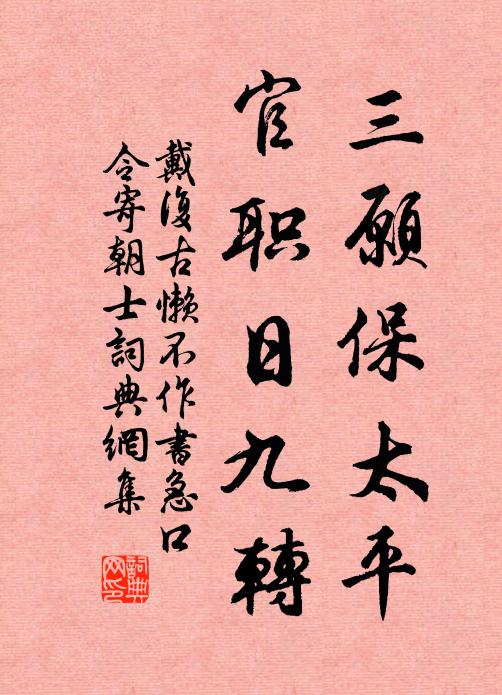 三願保太平
官职日九轉
戴復古懶不作書急口
令寄朝士詞典網集
詞典网印